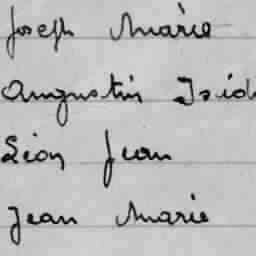 Joseph Marie
Augustin Isid
Léon Jean
Jean Marie